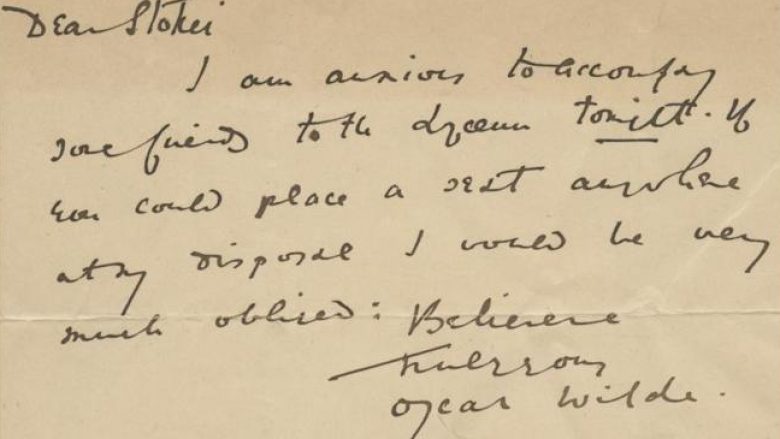 Dear Stoker
I am anxious to accompany
some friends to the Lyceum tonight. If
you could place a seat anywhere
at my disposal I would be very
much obliged: Believe me
truly yours
Oscar Wilde.